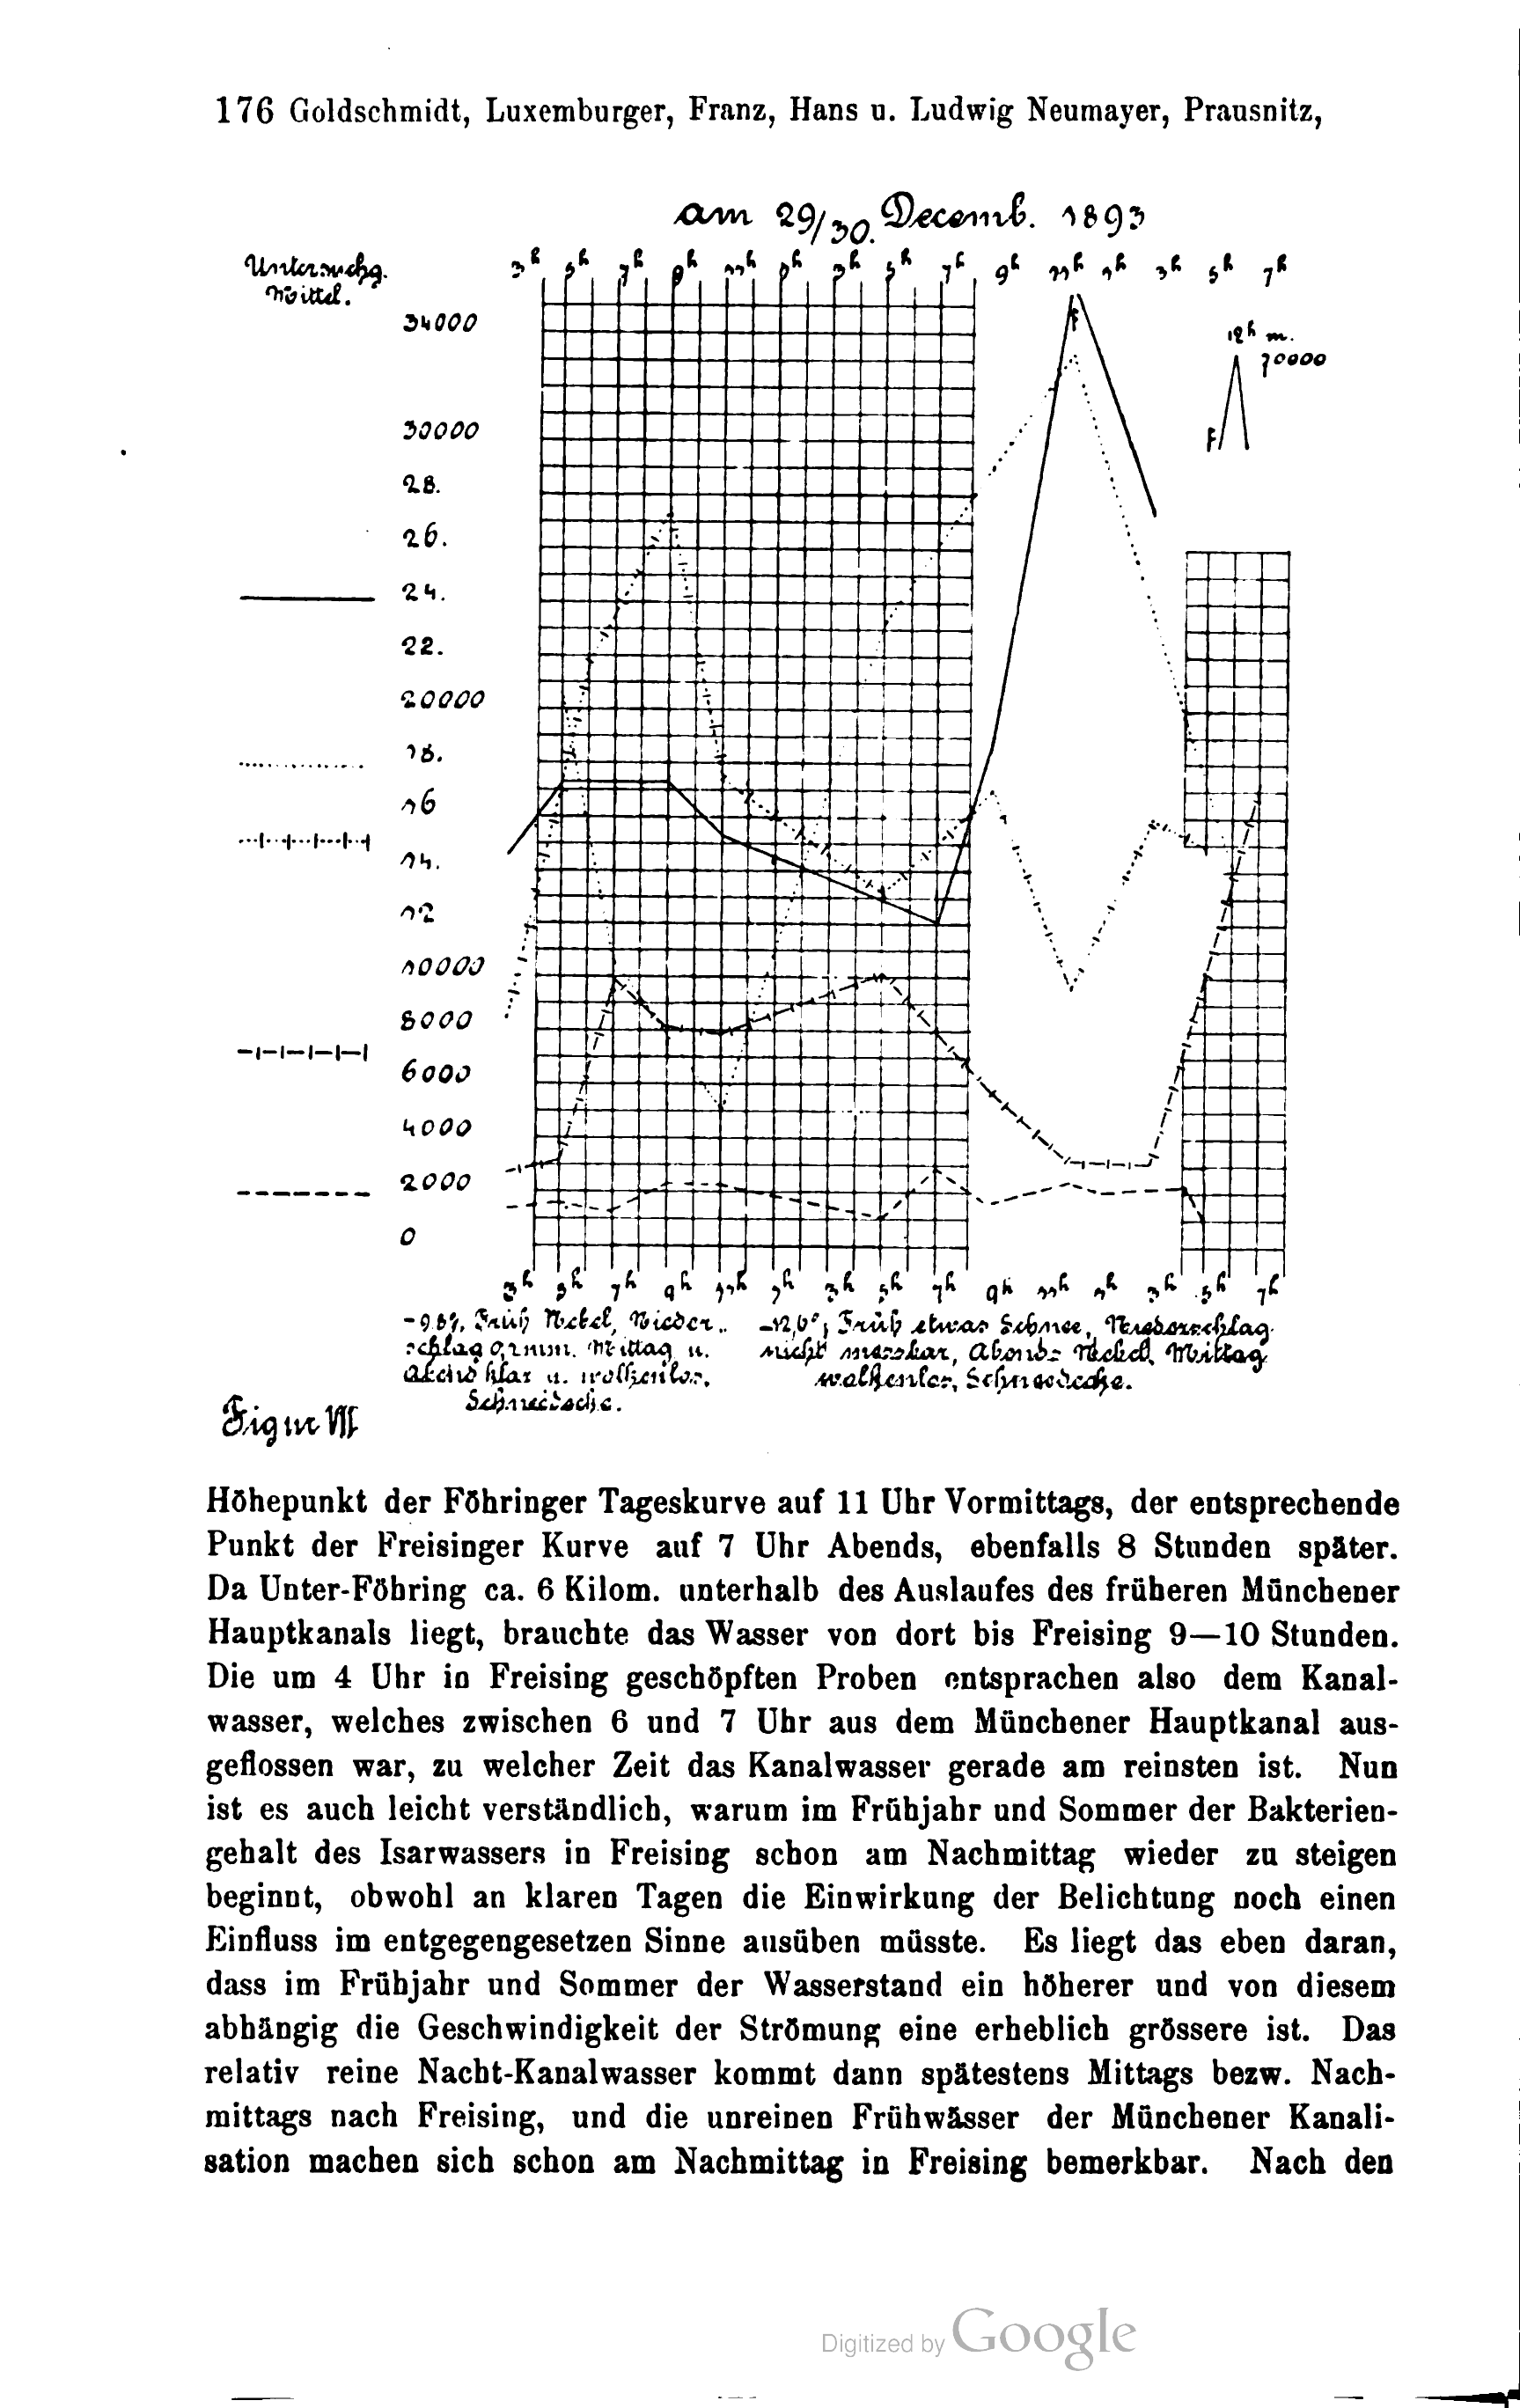 176 Goldschmidt, Luxemburger, Franz, Hans u. Ludwig Neumayer, Prausnitz,
am 29/30. Decemb. 1893
Untersuchg.
Mittel.
3h 5h 7h 9h 11h 1h 3h 5h 7h 9h 11h 1h 3h 5h 7h
34000
12h m.
70000
F
F
30000
28.
26.
24.
22.
20000
18.
16
14.
12
10000
8000
6000
4000
2000
0
3h 5h 7h 9h 11h 1h 3h 5h 7h 9h 11h 1h 3h 5h 7h
Früh Nebel, Nieder-
schlag 0,2 mm. Mittag u.
Abend klar u. wolkenlos,
Schneedecke.
-12,6°, Früh etwas Schnee, Niederschlag
nicht messbar, Abends Nebel, Mittag
wolkenlos, Schneedecke.
Figur VII
Höhepunkt der Föhringer Tageskurve auf 11 Uhr Vormittags, der entsprechende
Punkt der Freisinger Kurve auf 7 Uhr Abends, ebenfalls 8 Stunden später.
Da Unter-Föhring ca. 6 Kilom. unterhalb des Auslaufes des früheren Münchener
Hauptkanals liegt, brauchte das Wasser von dort bis Freising 9—10 Stunden.
Die um 4 Uhr in Freising geschöpften Proben entsprachen also dem Kanal-
wasser, welches zwischen 6 und 7 Uhr aus dem Münchener Hauptkanal aus-
geflossen war, zu welcher Zeit das Kanalwasser gerade am reinsten ist. Nun
ist es auch leicht verständlich, warum im Frühjahr und Sommer der Bakterien-
gehalt des Isarwassers in Freising schon am Nachmittag wieder zu steigen
beginnt, obwohl an klaren Tagen die Einwirkung der Belichtung noch einen
Einfluss im entgegengesetzen Sinne ausüben müsste. Es liegt das eben daran,
dass im Frühjahr und Sommer der Wasserstand ein höherer und von diesem
abhängig die Geschwindigkeit der Strömung eine erheblich grössere ist. Das
relativ reine Nacht-Kanalwasser kommt dann spätestens Mittags bezw. Nach-
mittags nach Freising, und die unreinen Frühwässer der Münchener Kanali-
sation machen sich schon am Nachmittag in Freising bemerkbar. Nach den
Digitized by Google